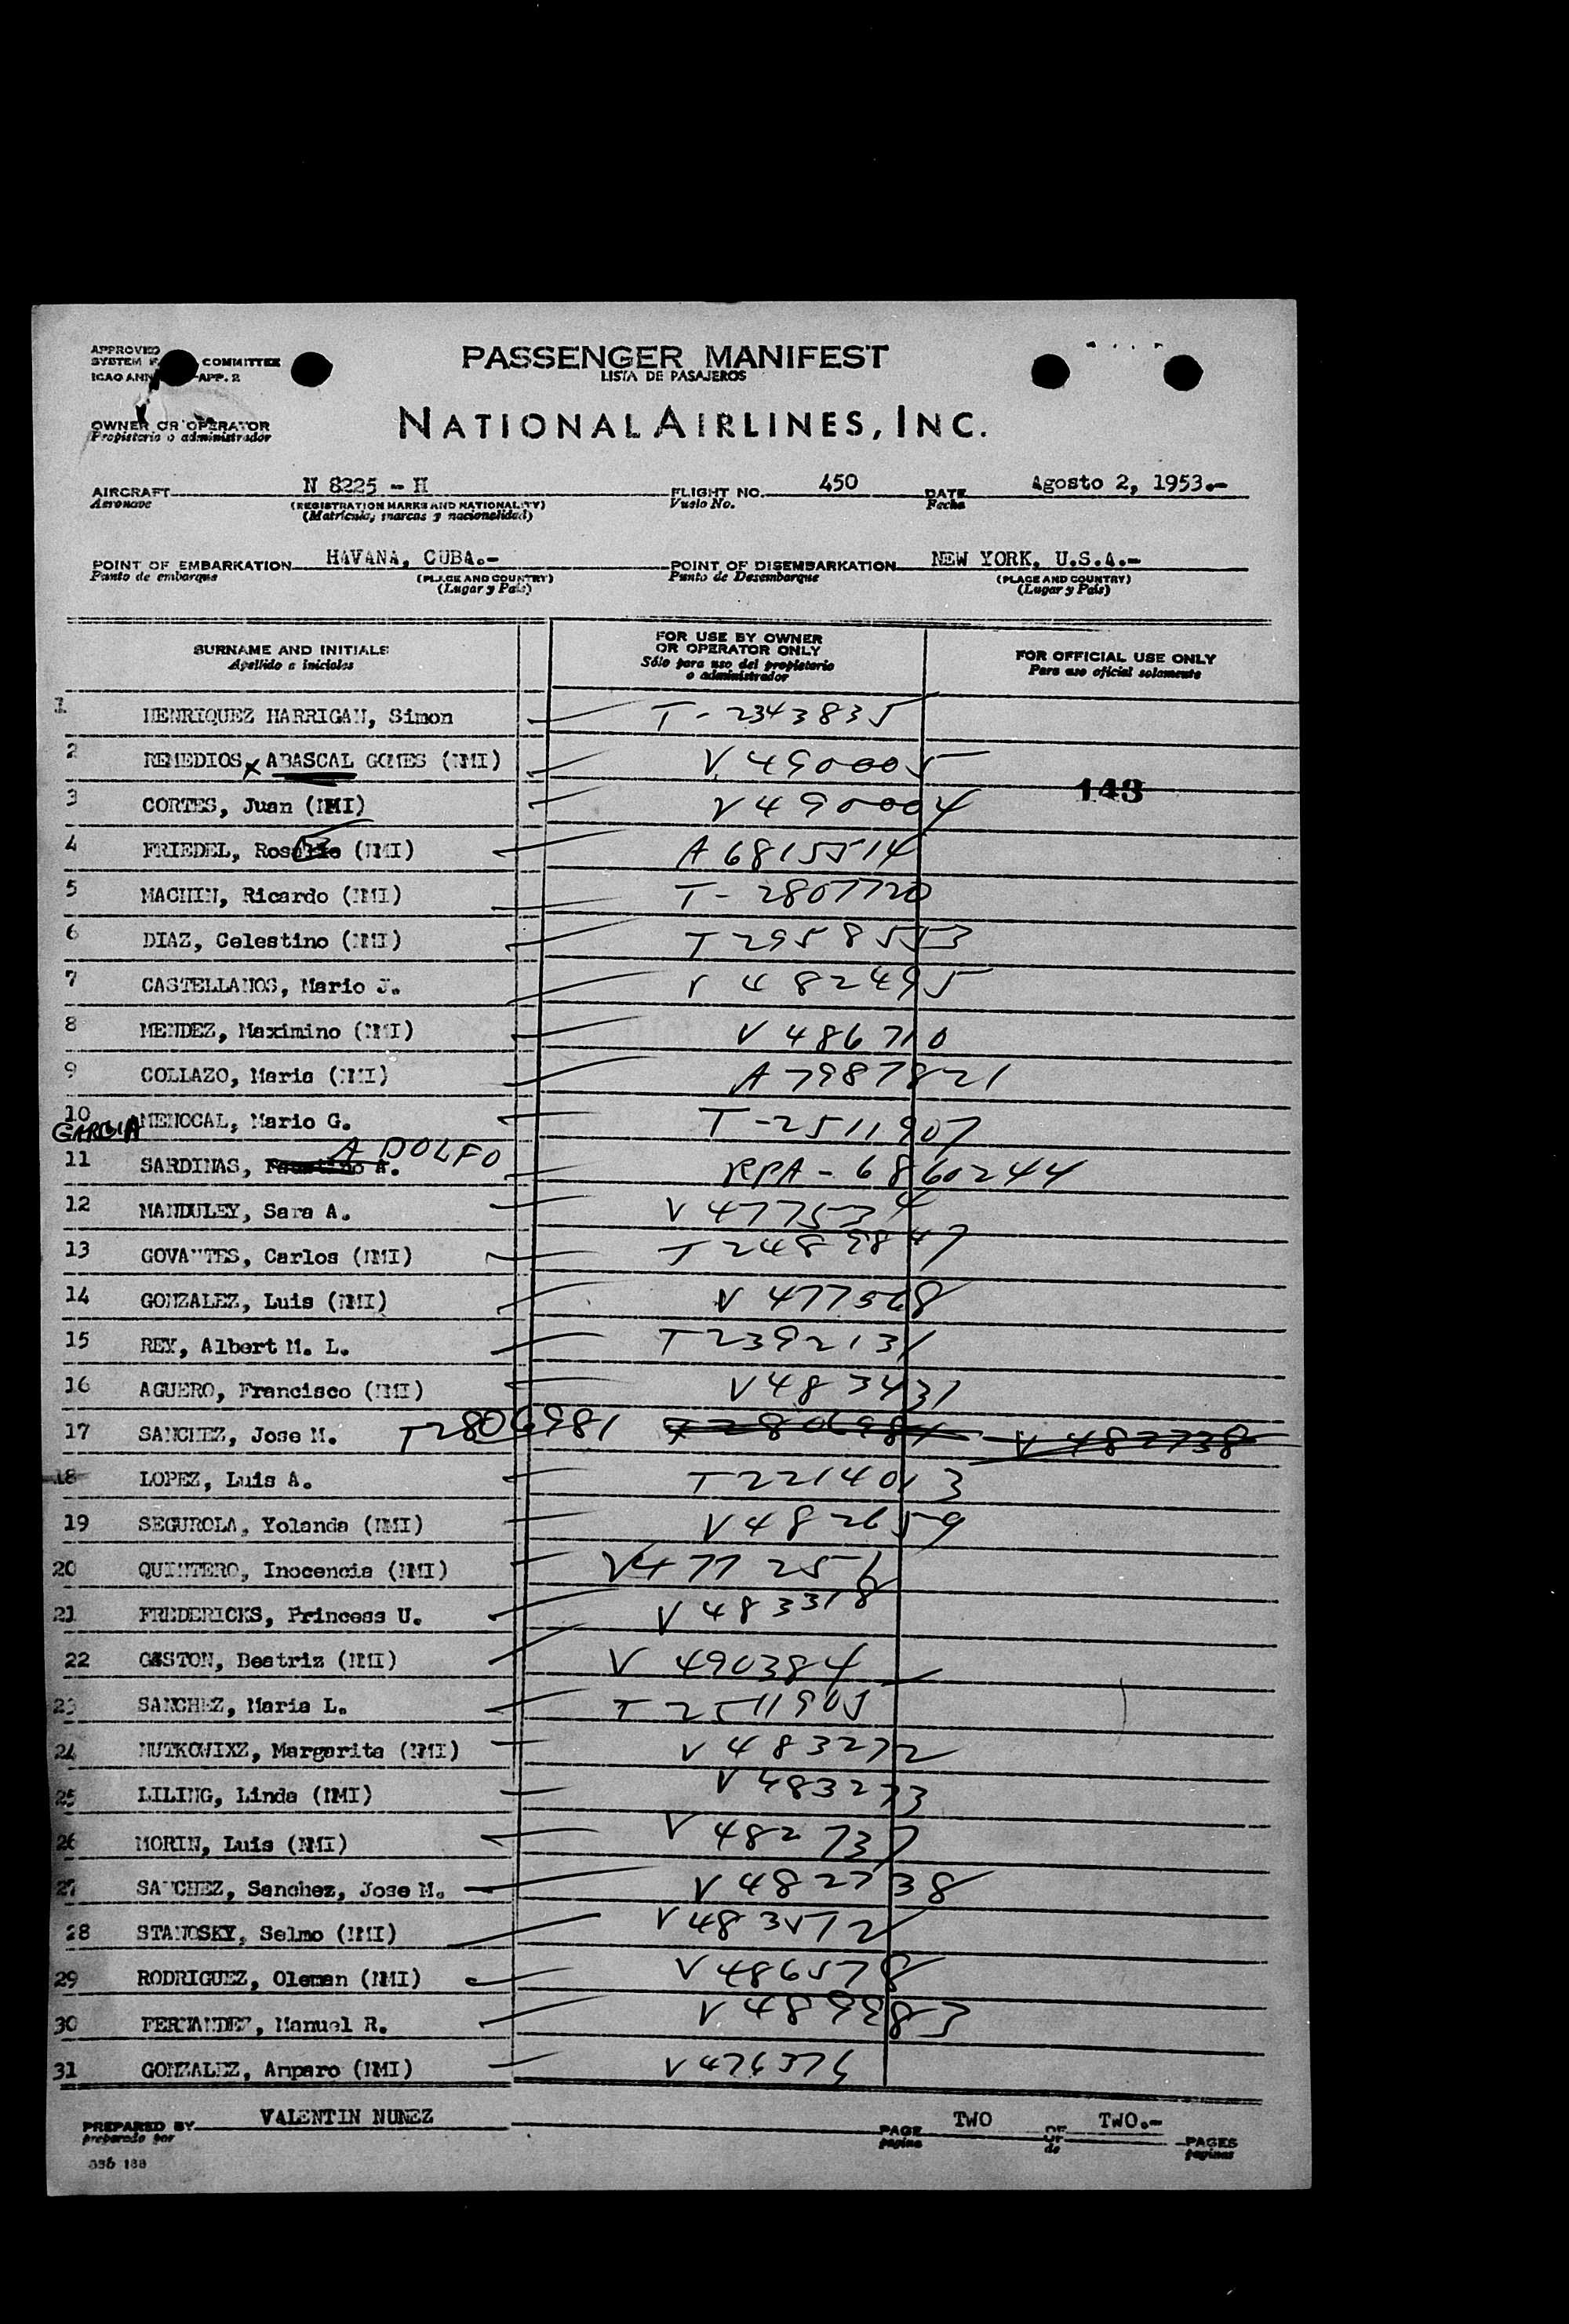 APPROVED
SYSTEM COMMITTEE
ICAO ANN APP. 2
PASSENGER MANIFEST
LISTA DE PASAJEROS
OWNER OR OPERATOR
Propietario o administrador
NATIONAL AIRLINES, INC.
AIRCRAFT N 8225 - H FLIGHT NO. 450 DATE Agosto 2, 1953.-
Aeronave (REGISTRATION MARKS AND NATIONALITY) Vuelo No. Fecha
(Matricula, marcas y nacionalidad)
POINT OF EMBARKATION HAVANA, CUBA.- POINT OF DISEMBARKATION NEW YORK, U.S.A.-
Punto de embarque (PLACE AND COUNTRY) Punto de Desembarque (PLACE AND COUNTRY)
(Lugar y País) (Lugar y País)
SURNAME AND INITIALS
Apellido e iniciales
FOR USE BY OWNER
OR OPERATOR ONLY
Sólo para uso del propietario
o administrador
FOR OFFICIAL USE ONLY
Para uso oficial solamente
1 HENRIQUEZ HARRIGAN, Simon T-2343835
2 REMEDIOS x ABASCAL GOMES (NMI) V 490005
143
3 CORTES, Juan (NMI) V 490004
4 FRIEDEL, (NMI) A 6815514
5 MACHIN, Ricardo (NMI) T-2807720
6 DIAZ, Celestino (NMI) T 2958553
7 CASTELLANOS, Mario J. V 482495
8 MENDEZ, Maximino (NMI) V 486710
9 COLLAZO, Maria (NMI) A 7987821
10 GARCIA MENOCAL, Mario G. T-2511907
11 SARDINAS, Faustino A. ADOLFO RPA-6860244
12 MANDULEY, Sara A. V 477534
13 GOVANTES, Carlos (NMI)
14 GONZALEZ, Luis (NMI) V 477568
15 REY, Albert M. L. T 2392131
16 AGUERO, Francisco (NMI) V 483431
17 SANCHEZ, Jose M. T2806981 T2806981 V 482738
18 LOPEZ, Luis A. T 2214013
19 SEGUROLA, Yolanda (NMI) V 482659
20 QUINTERO, Inocencia (NMI) V 477251
21 FREDERICKS, Princess U. V 483318
22 GASTON, Beatriz (NMI) V 490384
23 SANCHEZ, Maria L. T 2511905
24 NUTKOWIXZ, Margarita (NMI) V 483272
25 LILING, Linda (NMI) V 483273
26 MORIN, Luis (NMI) V 482737
27 SANCHEZ, Sanchez, Jose M. V 482738
28 STANOSKY, Selmo (NMI) V 483572
29 RODRIGUEZ, Oleman (NMI) V 486578
30 FERNANDEZ, Manuel R.
31 GONZALEZ, Amparo (NMI) V 476376
PREPARED BY VALENTIN NUNEZ PAGE TWO OF TWO.- PAGES
preparado por pagina de paginas